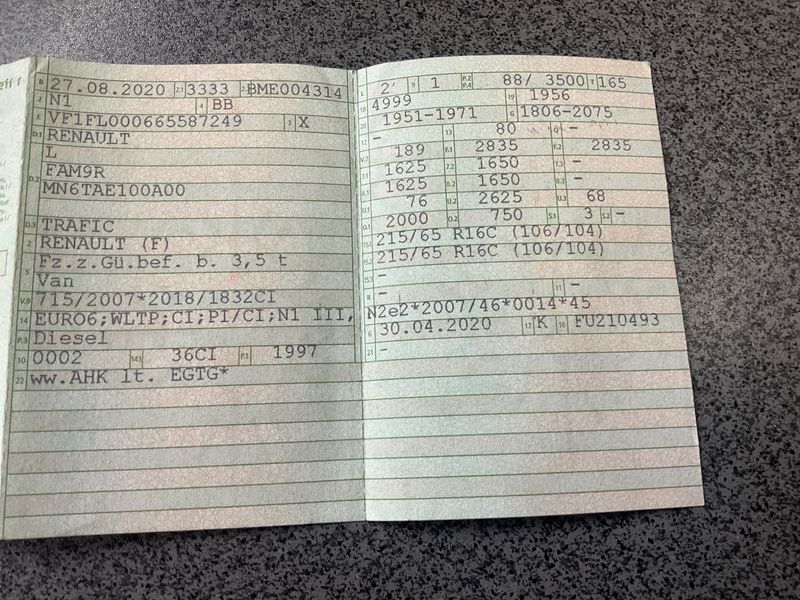 B 27.08.2020 2.1 3333 2.2 BME004314
J N1 4 BB
E VF1FL000665587249 3 X
D.1 RENAULT
L
D.2 FAM9R
MN6TAE100A00
D.3 TRAFIC
2 RENAULT (F)
5 Fz.z.Gü.bef. b. 3,5 t
Van
V.9 715/2007*2018/1832CI
14 EURO6;WLTP;CI;PI/CI;N1 III,
P.3 Diesel
10 0002 14.1 36CI P.1 1997
22 ww.AHK lt. EGTG*
L 2 9 1 P.2 P.4 88/ 3500 T 165
18 4999 19 1956
20 1951-1971 G 1806-2075
12 - 13 80 Q -
V.7 189 F.1 2835 F.2 2835
7.1 1625 7.2 1650 7.3 -
8.1 1625 8.2 1650 8.3 -
U.1 76 U.2 2625 U.3 68
O.1 2000 O.2 750 S.1 3 S.2 -
15.1 215/65 R16C (106/104)
15.2 215/65 R16C (106/104)
15.3 -
R - 11 -
K N2e2*2007/46*0014*45
6 30.04.2020 17 K 16 FU210493
21 -